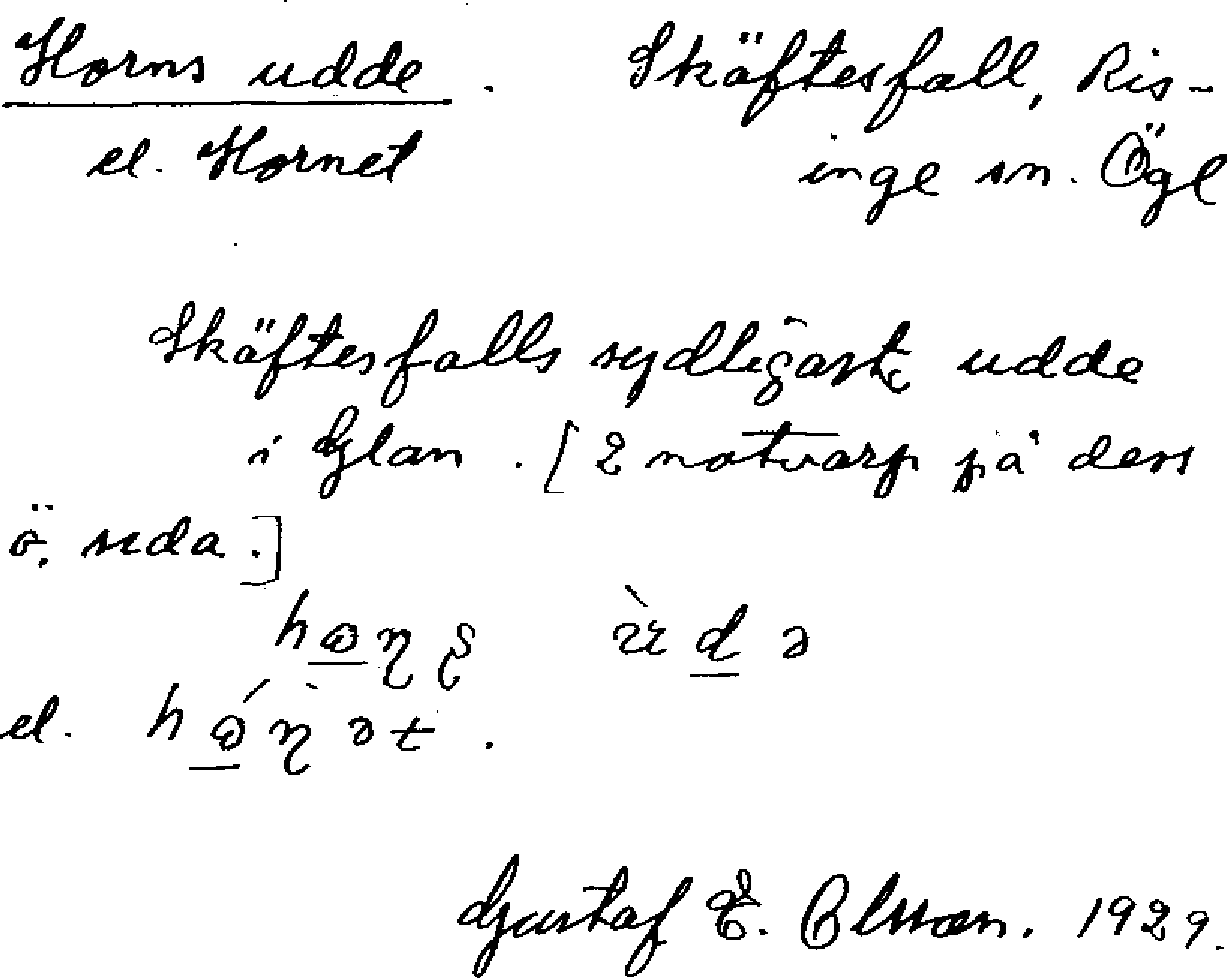 Horns udde. Skäftesfall, Ris-
el. Hornet inge sn. Ögl
Skäftesfalls sydligaste udde
i Glan. [2 notvarp på dess
ö. sida.]
el.
Gustaf E. Olsson. 1929.